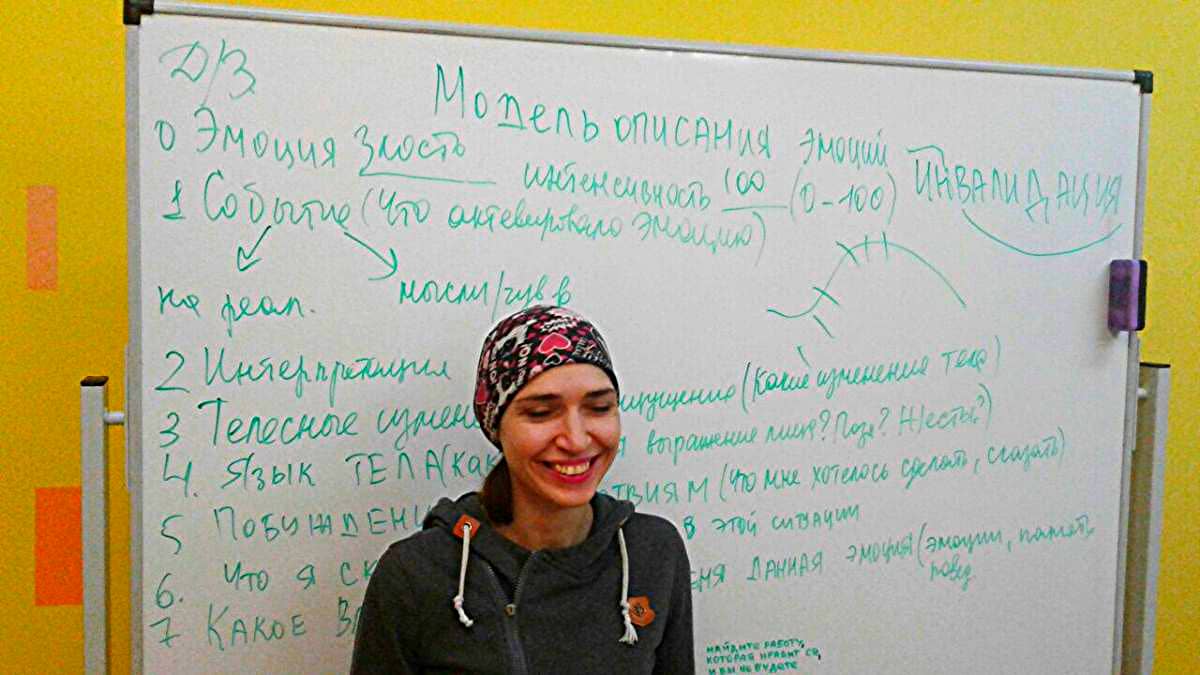 Д/З
Модель описания эмоций
0 Эмоция Злость интенсивность 100 (0-100)
ИНВАЛИДАЦИЯ
1 Событие (Что активировало эмоцию)
на реал. мысли/чув в
2 Интерпретация
3 Телесные измене ощущение (какие изменения тела)
4. Язык ТЕЛА (как выражение лица? Поза? Жесты?)
5 ПОБУЖДЕНИ СТВИЯМ (что мне хотелось сделать, сказать)
6. ЧТО Я С В ЭТОЙ СИТУАЦИИ
7 КАКОЕ ДАННАЯ ЭМОЦИЯ (эмоции, память,
повед
НАЙДИТЕ РАБОТУ,
КОТОРАЯ НРАВИТ СЯ,
И ВЫ НЕ БУДЕТЕ